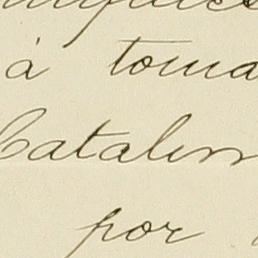 á toma
Catalin
por